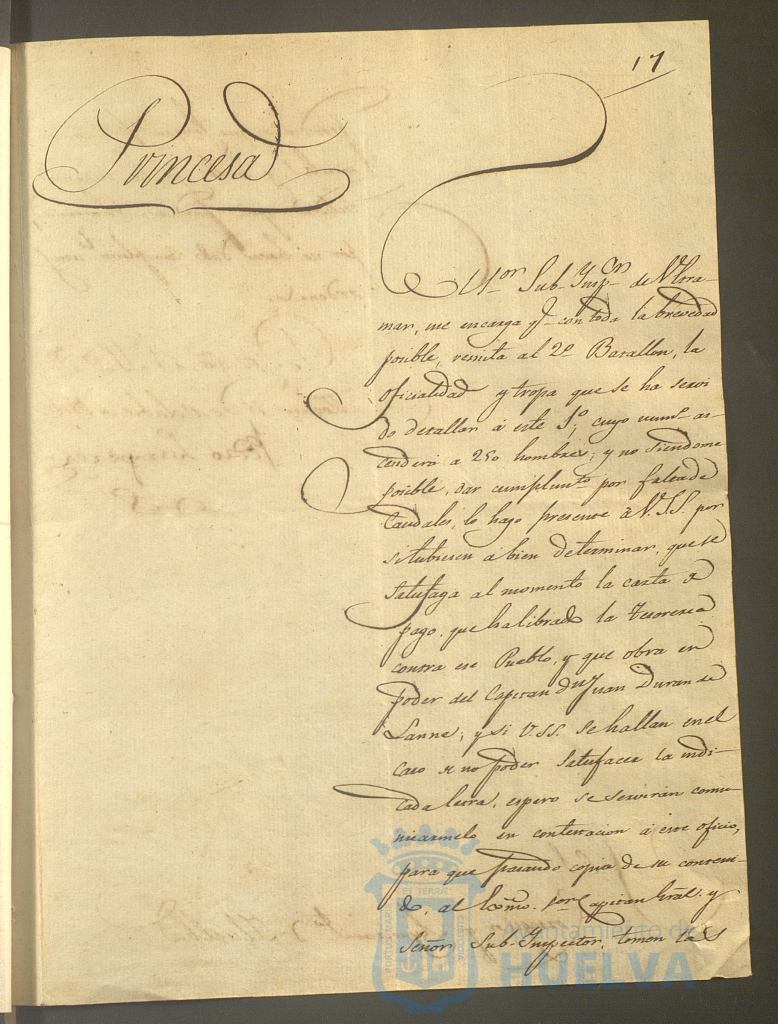 17
Princesa
El Sor Sub-Ynspor de Vilora-
mar, me encarga qe con toda la brevedad
posible, remita al 2º Batallon, la
oficialidad y tropa que se ha servi
do detallar á este 
cuyo numo as-
cenderá a 250 hombres; y no siendome
posible, dar cumplimto por falta de
Caudales, lo hago presente á V.SS. por
si tubiesen a bien determinar, que se
satisfaga al momento la carta de
pago, que ha librado la Tesoreria
contra ese Pueblo, y que obra en
poder del Capitan dn Juan Duran de
Lanne; y si V.SS. se hallan en el
caso de no poder satisfacer la indi-
cada letra, espero se servirán comu-
nicarmelo en contestacion á este oficio,
para que pasando copia de su conteni-
do, al Exmo. Sor Capitan Gral. y
Señor Sub-Ynspector, tomen las
Ayuntamiento de
HUELVA